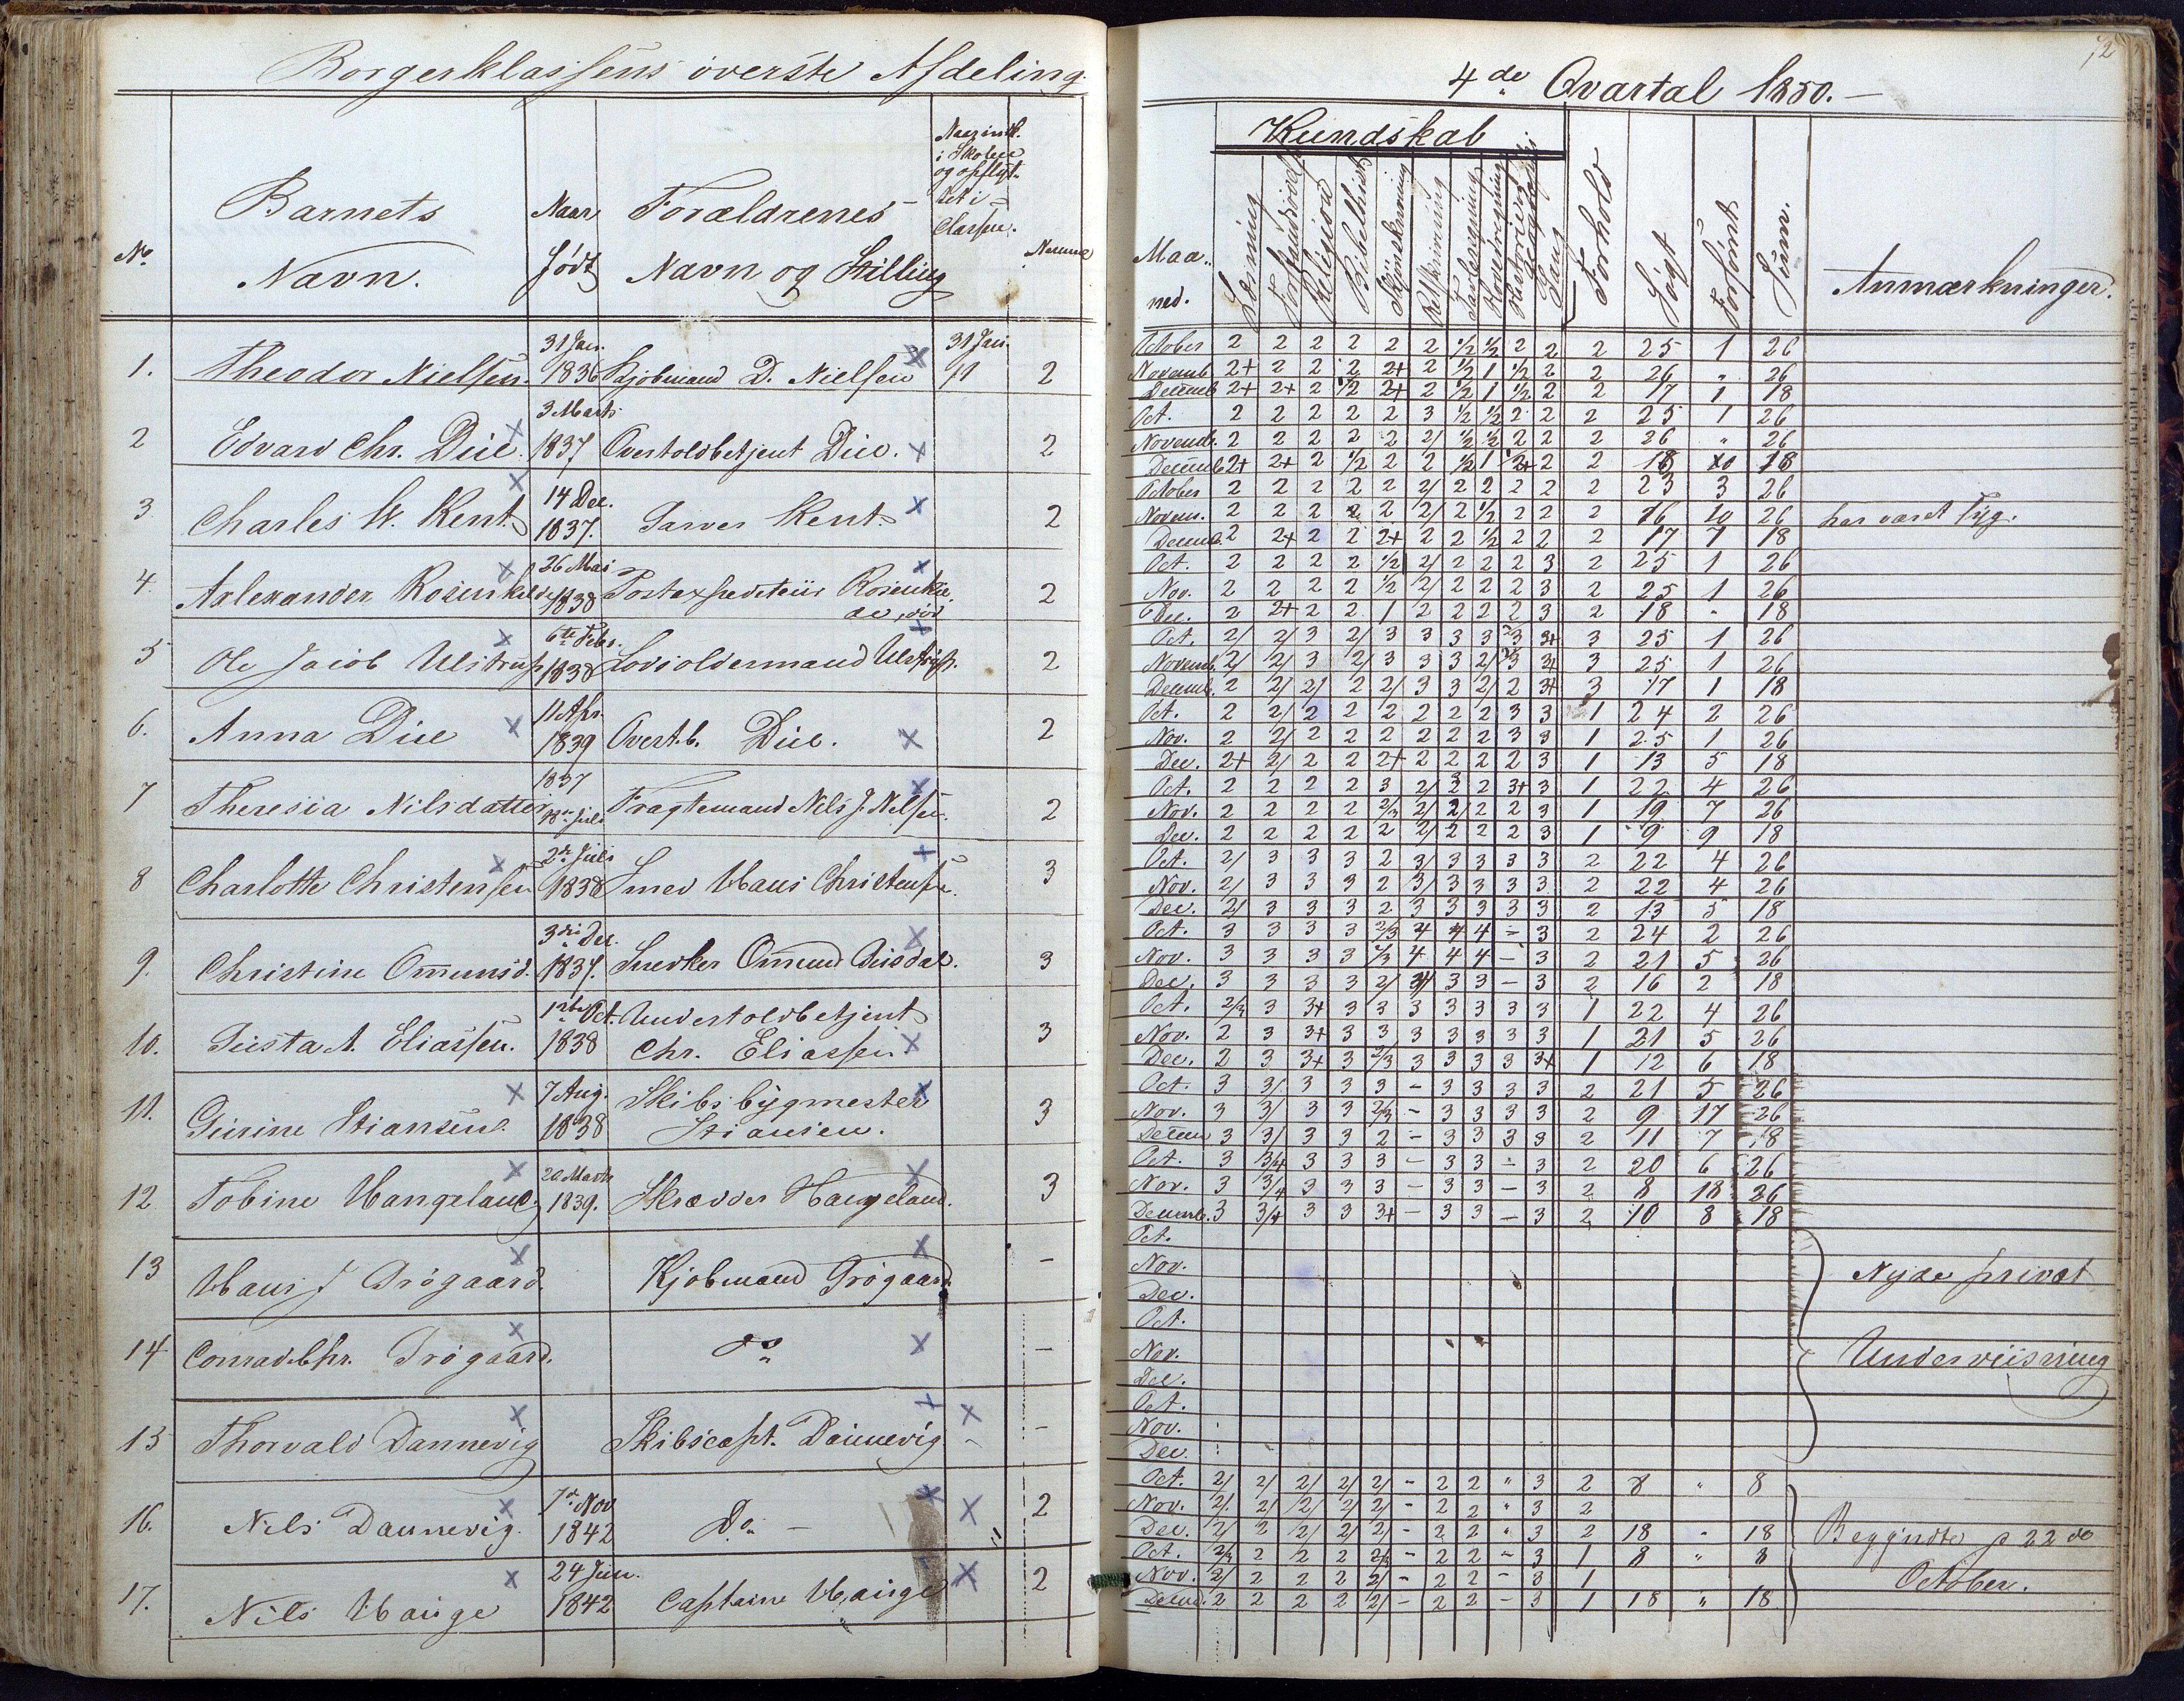 Borgerklassens överste Afdeling.
No. Barnets Navn. Naar födt Forældrenes Navn og Stilling Naar indk. i Skolen og opflyt- tet i Classen. Numer
1. Theodor Nielsen. 31 Jan. 1836 Kjöbmand D. Nielsen 31 Jan. 2
2 Edvard Chr. Due. 3 Marts 1837 Overtoldbetjent Due. 2
3 Charles W. Kent. 14 Dec. 1837. Garver Kent. 2
4. Alexander Rosenkilde 26 Mai 1838 Postexpediteur Rosenkil- de, död 2
5 Ole Jacob Ulstrup 6te Febr. 1838 Lodsoldermand Ulstrup. 2
6. Anna Due 11 Apr. 1839 Overt.b. Due. 2
7 Theresia Nilsdatter 1837 Juli Fragtemand Nils J. Nelsen. 2
8 Charlotte Christensen 2den Juli 1838 Smed Hans Christensen. 3
9. Christine Omunds. 3die Dec. 1837. Snedker Omund 3
10. A. Eliassen. Oct. 1838 Undertoldbetjent Chr. Eliassen 3
11. Stiansen. 7 Aug. 1838 Skibsbygmester Stiansen. 3
12 Tobine Hangeland. 20 Marts 1839. Skrædder Haugeland. 3
13 Hans J Trögaard. Kjöbmand Trögaard. -
14 Conrad Chr. Trögaard. do -
15 Thorvald Dannevig Skibscapt. Dannevig -
16. Nils Dannevig. 7de Nov 1842 Do. - 2
17. Nils Hauge 24 Jun. 1842 Captaine Hauge 2
72
4de Qvartal 1850. -
Kundskab
Maa- ned. Læsning Forstandsövelse Religion Bibelhist. Skjönskrivning Retskrivning Tavleregning Hovedregning Historie og Geographie Sang Forhold Sögt Forsömt Sum. Anmærkninger.
October 2 2 2 2 2 2 1/2 1/2 2 2 2 25 1 26
Novemb 2+ 2 2 2 2+ 2 1/2 1 1/2 2 2 26 " 26
Decemb 2+ 2+ 2 1/2 2+ 2 1/2 1 1/2 2 2 17 1 18
Oct. 2 2 2 2 2 3 1/2 1/2 2 2 2 25 1 26
Novemb. 2 2 2 2 2 2/ 1/2 1/2 2 2 2 26 " 26
Decemb 2+ 2+ 2 1/2 2 2 1/2 1 2 2 18 18
October 2 2 2 2 2 2/ 2 2 2 2 2 23 3 26
Novem. 2 2 2 2 2 2/ 2 1/2 2 2 2 16 10 26 har været syg.
Decemb. 2 2+ 2 2 2+ 2 2 1/2 2 2 2 17 1 18
Oct. 2 2 2 2 1/2 2/ 2 2 2 3 2 25 1 26
Nov. 2 2 2 2 1/2 2/ 2 2 2 3 2 25 1 26
Dec. 2 2+ 2 2 1 2 2 2 2 3 2 18 - 18
Oct. 2/ 2/ 3 2/ 3 3 3 3 3 3+ 3 25 1 26
Novemb. 2/ 2/ 3 2/ 3 3 3 2/ 3 3+ 3 25 1 26
Decemb. 2 2/ 2/ 2 2/ 3 3 2/ 2 3+ 3 17 1 18
Oct. 2 2/ 2 2 2 2 2 2 3 3 1 24 2 26
Nov. 2 2/ 2 2 2 2 2 2 3 3 1 25 1 26
Dec. 2+ 2/ 2 2 2+ 2 2 2 2 3 1 13 5 18
Oct. 2 2 2 2 3 2/ 2 2 3+ 3 1 22 4 26
Nov. 2 2 2 2 2/3 2/ 2/ 2 2 3 1 19 7 26
Dec. 2 2 2 2 2 2/ 2 2 2 3 1 9 9 18
Oct. 2/ 3 3 3 2 3/ 3 3 3 3 2 22 4 26
Nov. 2/ 3 3 3 2 3/ 3 3 3 3 2 22 4 26
Dec. 2/ 3 3 3 2 3 3 3 3 3 2 13 5 18
Oct. 3 3 3 3 2/3 4 4 4 - 3 2 24 2 26
Nov. 3 3 3 3 2/3 4 4 4 - 3 2 21 5 26
Dec. 3 3 3 3 2/ 3/ 3 3 - 3 2 16 2 18
Oct. 2/3 3 3+ 3 3 3 3 3 3 3 1 22 4 26
Nov. 2 3 3+ 3 3 3 3 3 3 3 1 21 5 26
Dec. 2 3 3+ 3 2/3 3 3 3 3 3+ 1 12 6 18
Oct. 3 3/ 3 3 3 - 3 3 3 3 2 21 5 26
Nov. 3 3/ 3 3 2/3 - 3 3 3 3 2 9 17 26
Decem 3 3/ 3 3 2 - 3 3 3 3 2 11 7 18
Oct. 3 3/4 3 3 3 - 3 3 - 3 2 20 6 26
Nov. 3 3/4 3 3 3 - 3 3 - 3 2 8 18 26
Decemb. 3 3/4 3 3 3+ - 3 3 - 3 2 10 8 18
Oct.
Nov. Nyde privat
Dec.
Oct.
Nov. Underviisning
Dec.
Oct.
Nov.
Dec.
Oct. 2/ 2/ 2/ 2/ 2/ - 2 2 " 3 2 8 " 8
Nov. 2/ 2/ 2/ 2/ 2/ - 2 2 " 3 2
Dec. 2/ 2 2/ 2/ 2/ - 2 2 " 3 2 18 - 18 Begyndte d 22de
Oct. 2/3 2 2 2 2/3 - 2 2 - 3 1 8 " 8
Nov. 2/ 2 2 2 2/ - 2 2 - 3 1 October.
Decemb. 2 2 2 2 2/ - 2 2 - 3 1 18 " 18